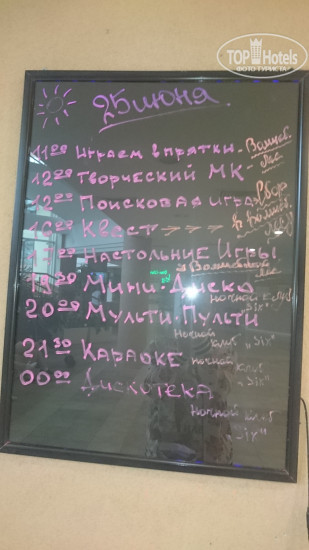 TOP Hotels
ФОТО ТУРИСТА
25 июня
11 00 Играем в прятки - Волшеб. лес
12 00 Творческий МК -
12 00 Поисковая игра Сбор
16 00 Квест в Волшеб. лесу
17 00 Настольные Игры
в Волшебном лес
Мини-Диско
20 00 Мульти-Пульти ночной клуб "Six"
21 30 Караоке ночной клуб "Six"
00 00 Дискотека ночной клуб "Six"
ночной клуб "Six"